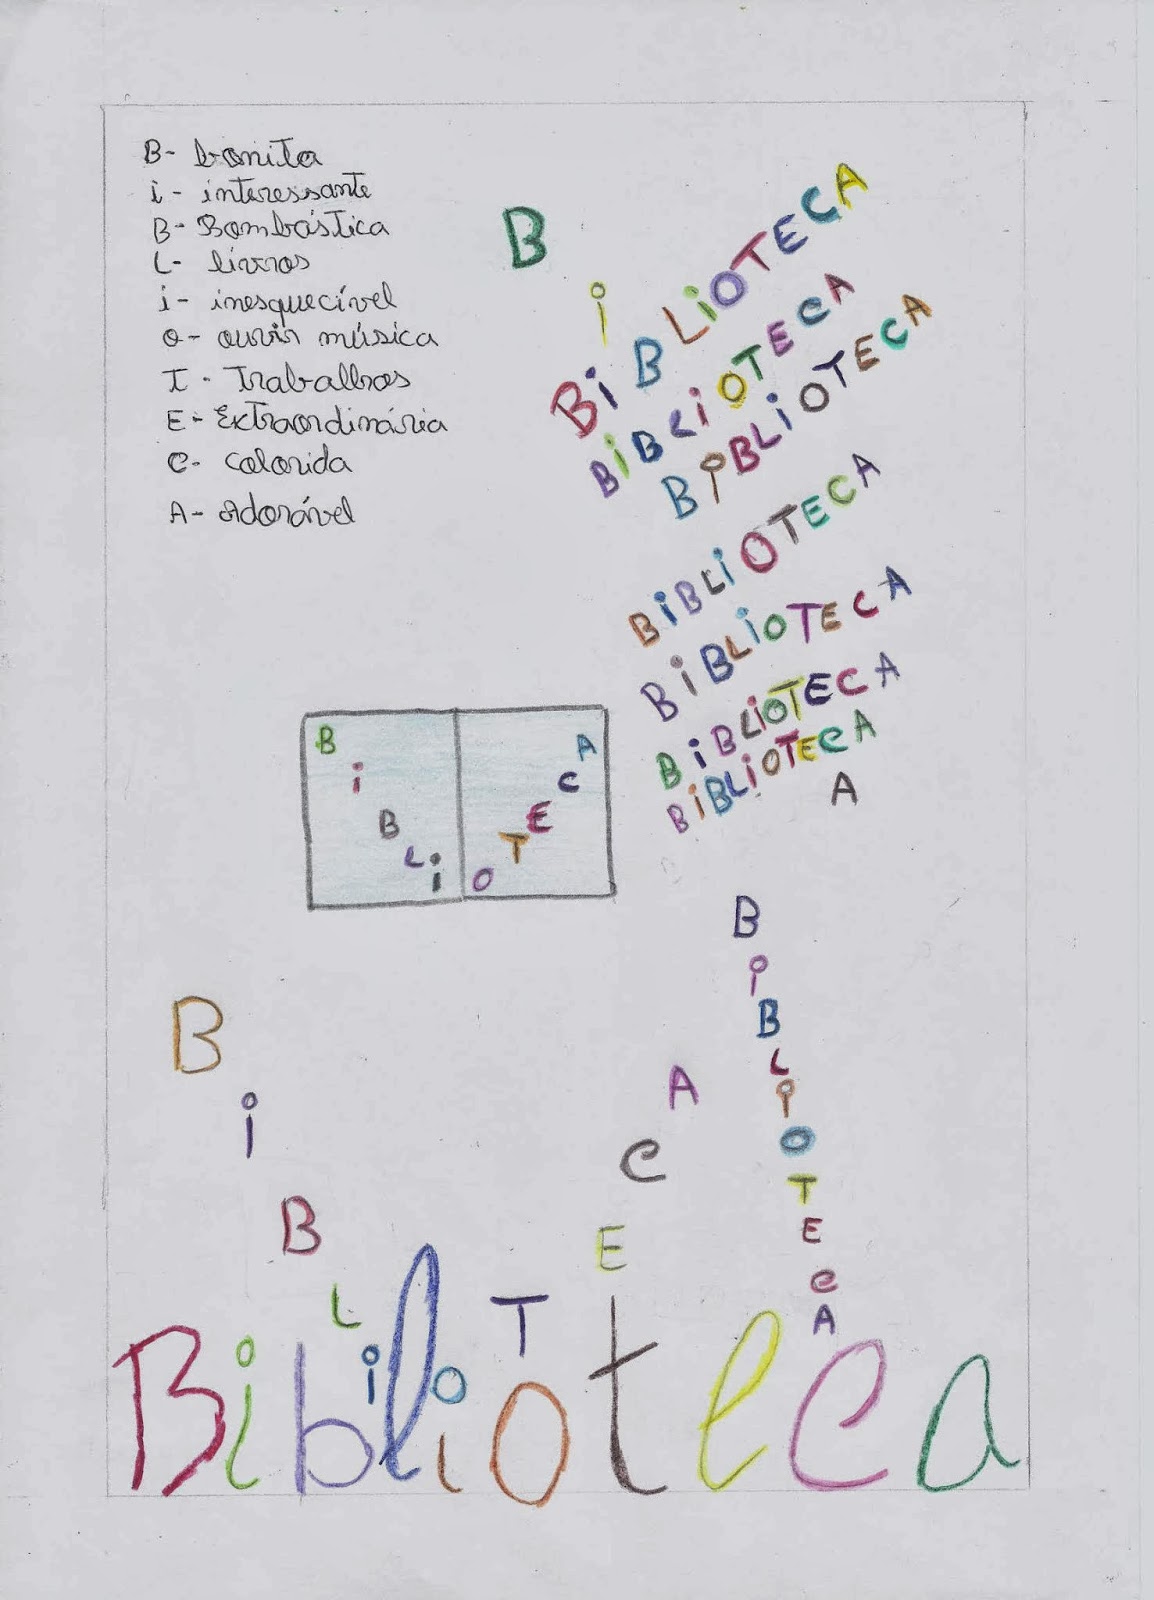 B- bonita
i- interessante
B- Bombástica
L- livros
i- inesquecível
O- ouvir música
T- Trabalhos
E- Extraordinária
C- colorida
A- Adorável
B
i
BiBLiOTECA
BiBLiOTECA
BiBLiOTECA
BiBLiOTECA
BiBLiOTECA
BiBLiOTECA
BiBLiOTECA
A
B
i
B
L
i
O
T
E
C
A
B
i
B
L
i
O
T
E
C
A
B
i
B
L
i
O
T
E
C
A
Biblioteca